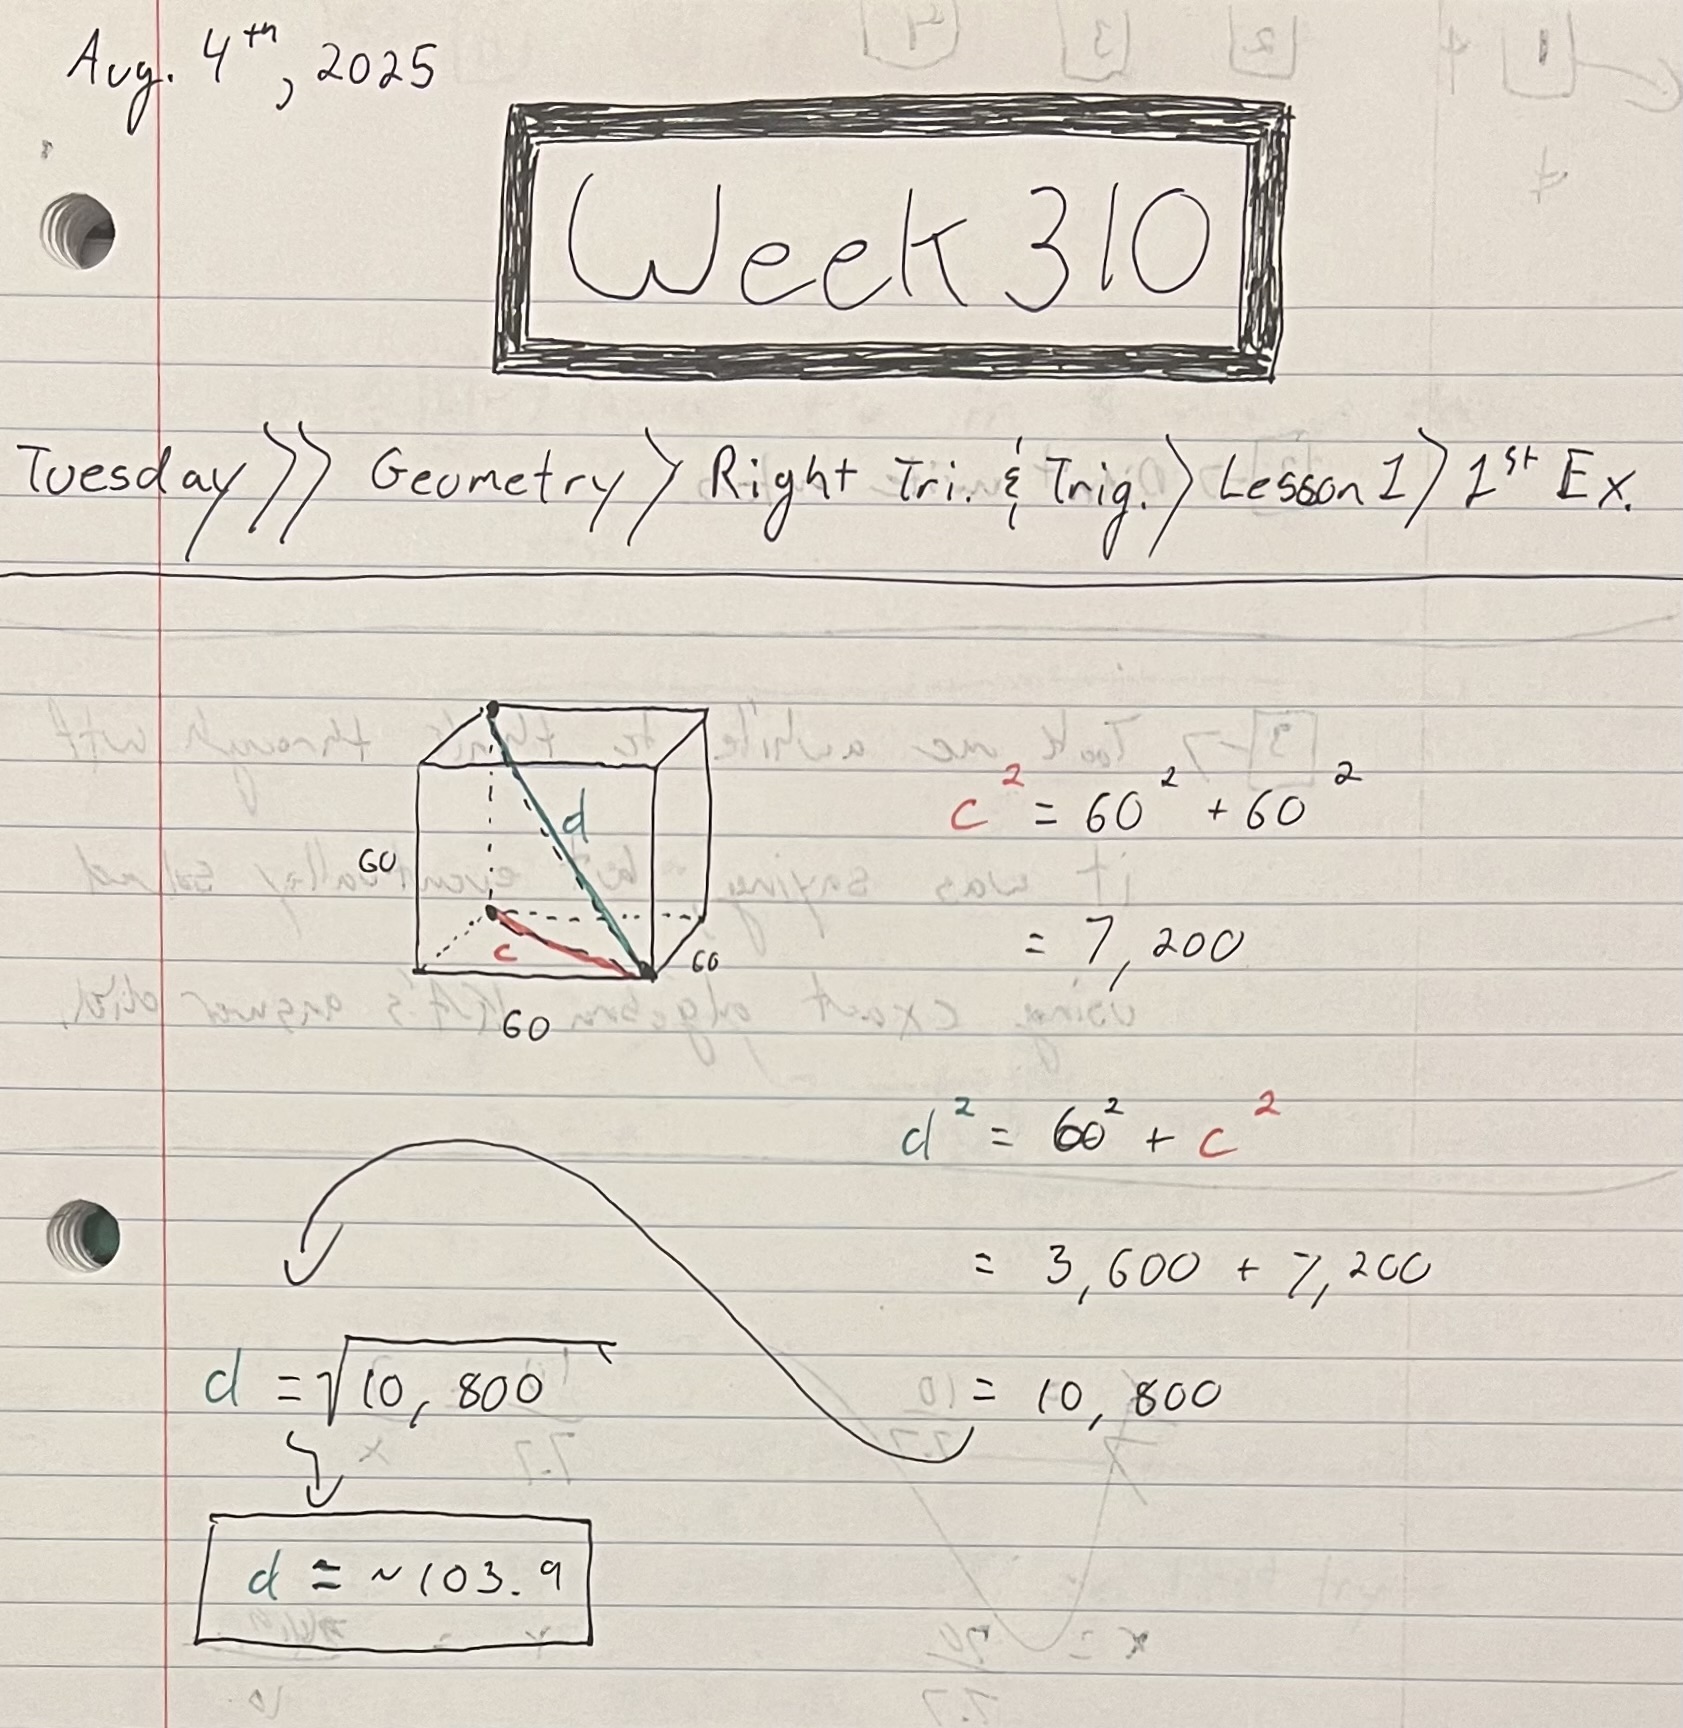 Aug. 4th, 2025
Week 310
Tuesday >> Geometry > Right Tri. & Trig. > Lesson 1 > 1st Ex.
d
60
c
60
60
c² = 60² + 60²
= 7,200
d² = 60² + c²
= 3,600 + 7,200
= 10,800
d = √10,800
d = ~103.9